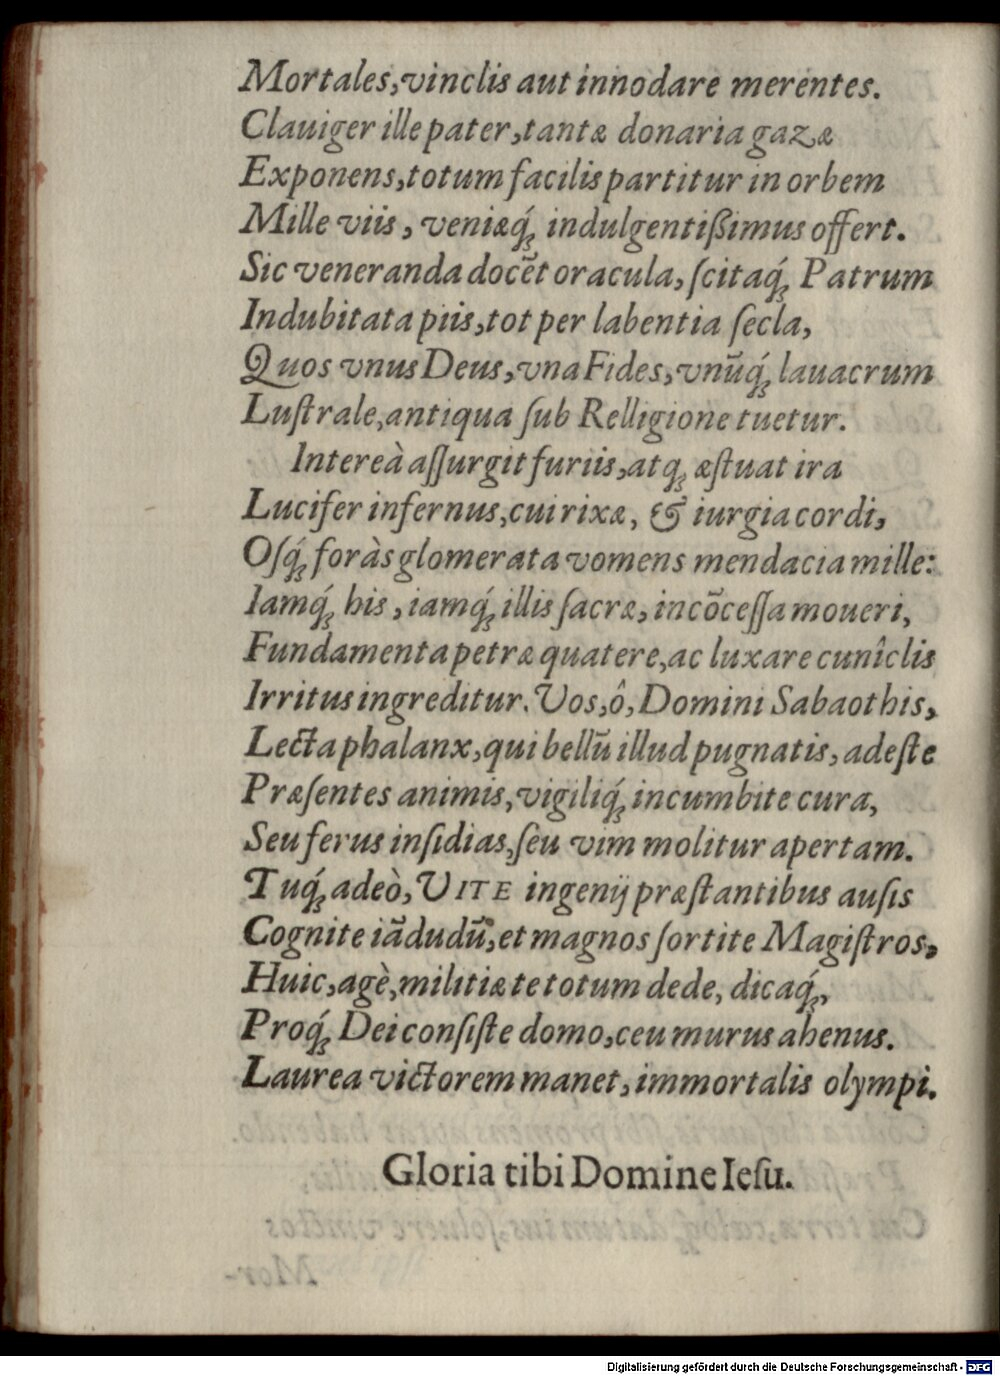 Mortales, vinclis aut innodare merentes.
Clauiger ille pater, tantæ donaria gazæ
Exponens, totum facilis partitur in orbem
Mille viis, veniæq́; indulgentißimus offert.
Sic veneranda docẽt oracula, ſcitaq́; Patrum
Indubitata piis, tot per labentia ſecla,
Quos vnus Deus, vna Fides, vnũq́; lauacrum
Luſtrale, antiqua ſub Relligione tuetur.
Intereà aſſurgit furiis, atq; æſtuat ira
Lucifer infernus, cui rixæ, & iurgia cordi,
Oſq́; foràs glomerata vomens mendacia mille:
Iamq́; his, iamq́; illis ſacræ, incõceſſa moueri,
Fundamenta petræ quatere, ac luxare cunîclis
Irritus ingreditur. Vos, ô, Domini Sabaothis,
Lecta phalanx, qui bellũ illud pugnatis, adeſte
Præſentes animis, vigiliq́; incumbite cura,
Seu ferus inſidias, ſeu vim molitur apertam.
Tuq́; adeò, VITE ingenij præſtantibus auſis
Cognite iãdudũ, et magnos ſortite Magiſtros,
Huic, agè, militiæ te totum dede, dicaq́;,
Proq́; Dei conſiſte domo, ceu murus ahenus.
Laurea victorem manet, immortalis olympi.
Gloria tibi Domine Ieſu.
Digitalisierung gefördert durch die Deutsche Forschungsgemeinschaft - DFG